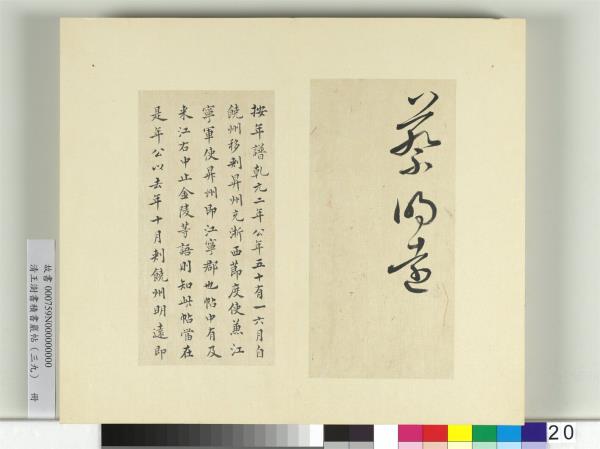 蔡明遠
按年譜乾元二年公年五十有一六月自
饒州移刺昇州充浙西節度使兼江
寧軍使昇州即江寧郡也帖中有及
来江右中止金陵等語則知此帖當在
是年公以去年十月刺饒州明遠即
故書000759N000000000
清王澍書積書巖帖(三九) 冊
20